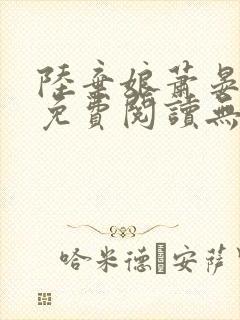 陸棄娘蕭晏
免費閱讀無
哈米德·安薩